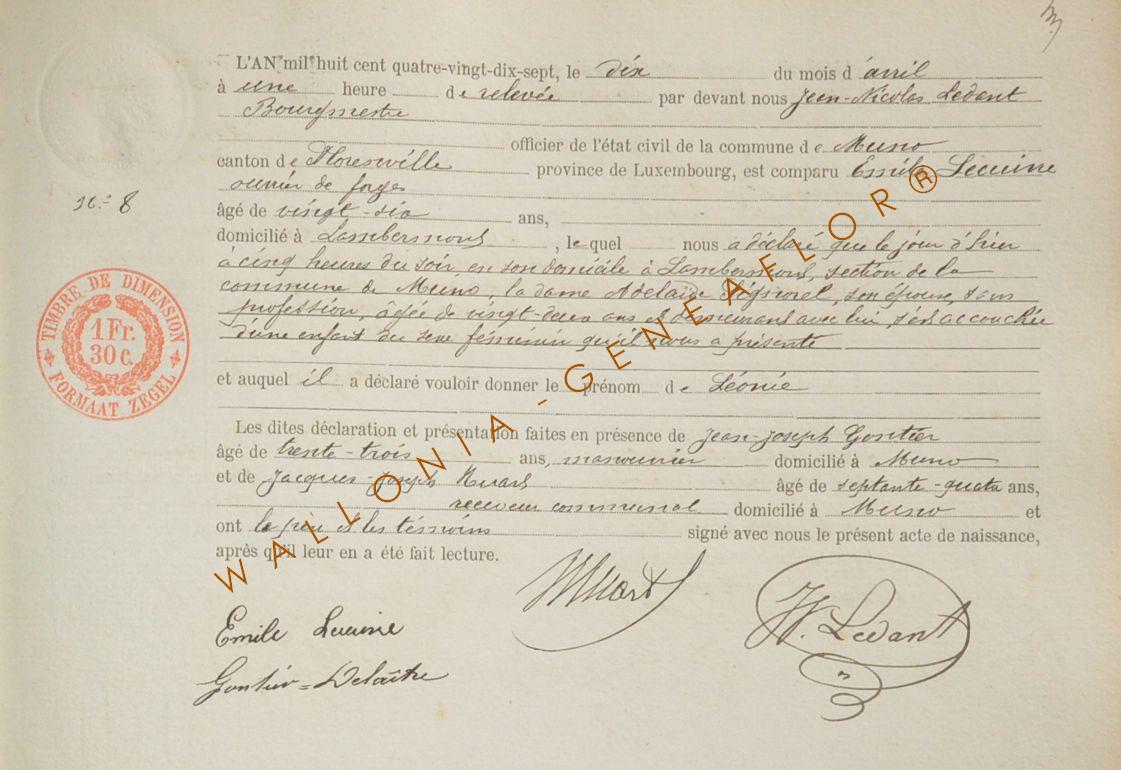 L'AN mil huit cent quatre-vingt-dix-sept, le dix du mois d'avril
à une heure de relevée par devant nous Jean-Nicolas Ledant
Bourgmestre
officier de l'état civil de la commune de Muno
canton de Florenville province de Luxembourg, est comparu Emile Lecuine
ouvrier de forges
N°. 8
âgé de vingt-six ans,
domicilié à Lambermont, lequel nous a déclaré que le jour d'hier
à cinq heures du soir, en son domicile à Lambermont, section de la
commune de Muno, la dame Adelaide, son épouse, sans
profession, âgée de vingt-deux ans et demeurant avec lui, s'est accouchée
d'une enfant du sexe féminin qu'il nous a présenté
TIMBRE DE DIMENSION
1 Fr.
30 C.
FORMAAT ZEGEL
et auquel il a déclaré vouloir donner le prénom de Léonie
Les dites déclaration et présentation faites en présence de Jean-Joseph Gontier
âgé de trente-trois ans, manouvrier domicilié à Muno
et de Jacques-Joseph Huart âgé de septante-quatre ans,
receveur communal domicilié à Muno et
ont le père et les témoins signé avec nous le présent acte de naissance,
après qu'il leur en a été fait lecture.
Huart
N. Ledant
Emile Lecuine
Gontier=Delaître
WALLONIA-GENEAFLOR®